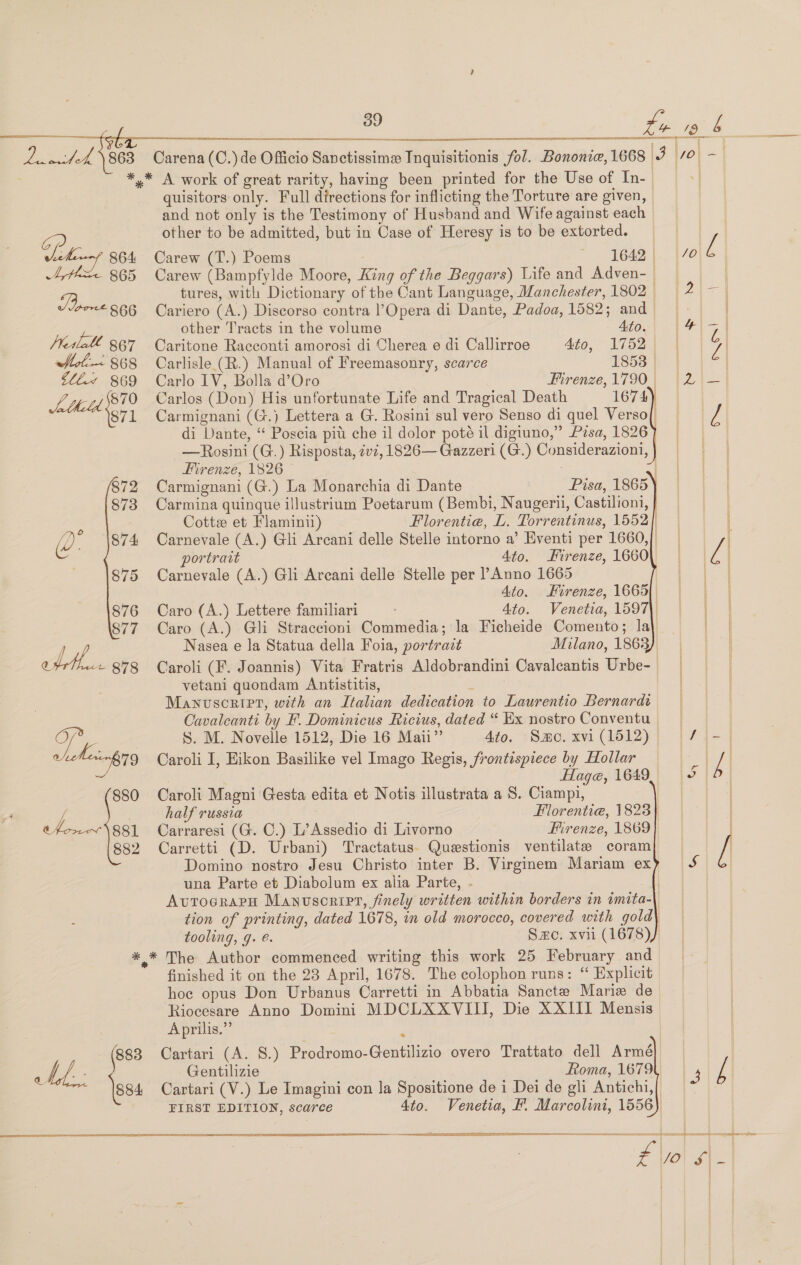 39
£4 19 6
Quaritch 863 Carena (C.) de Officio Sanctissimæ Inquisitionis fol. Bononiæ, 1668 3 10 -
*** A work of great rarity, having been printed for the Use of In-
quisitors only. Full directions for inflicting the Torture are given,
and not only is the Testimony of Husband and Wife against each
other to be admitted, but in Case of Heresy is to be extorted.
864 Carew (T.) Poems 1642 10 6
865 Carew (Bampfylde Moore, King of the Beggars) Life and Adven-
tures, with Dictionary of the Cant Language, Manchester, 1802 2 -
866 Cariero (A.) Discorso contra l'Opera di Dante, Padoa, 1582; and
other Tracts in the volume 4to. 4 -
867 Caritone Racconti amorosi di Cherea e di Callirroe 4to, 1752 6
868 Carlisle (R.) Manual of Freemasonry, scarce 1853
Ellis 869 Carlo IV, Bolla d'Oro Firenze, 1790 2 -
870 Carlos (Don) His unfortunate Life and Tragical Death 1674
871 Carmignani (G.) Lettera a G. Rosini sul vero Senso di quel Verso 6
di Dante, “ Poscia più che il dolor poté il digiuno,” Pisa, 1826
—Rosini (G.) Risposta, ivi, 1826—Gazzeri (G.) Considerazioni,
Firenze, 1826
872 Carmignani (G.) La Monarchia di Dante Pisa, 1865
873 Carmina quinque illustrium Poetarum (Bembi, Naugerii, Castilioni,
Cottæ et Flaminii) Florentiæ, L. Torrentinus, 1552
874 Carnevale (A.) Gli Arcani delle Stelle intorno a' Eventi per 1660,
portrait 4to. Firenze, 1660 6
875 Carnevale (A.) Gli Arcani delle Stelle per l'Anno 1665
4to. Firenze, 1665
876 Caro (A.) Lettere familiari 4to. Venetia, 1597
877 Caro (A.) Gli Straccioni Commedia; la Ficheide Comento; la
Nasea e la Statua della Foia, portrait Milano, 1863
Arthur 878 Caroli (F. Joannis) Vita Fratris Aldobrandini Cavalcantis Urbe-
vetani quondam Antistitis,
Manuscript, with an Italian dedication to Laurentio Bernardi
Cavalcanti by F. Dominicus Ricius, dated “ Ex nostro Conventu
S. M. Novelle 1512, Die 16 Maii” 4to. Sæc. xvi (1512) 1 -
879 Caroli I, Eikon Basilike vel Imago Regis, frontispiece by Hollar
Hagæ, 1649 5 6
880 Caroli Magni Gesta edita et Notis illustrata a S. Ciampi,
half russia Florentiæ, 1823
881 Carraresi (G. C.) L'Assedio di Livorno Firenze, 1869
882 Carretti (D. Urbani) Tractatus Quæstionis ventilatæ coram
Domino nostro Jesu Christo inter B. Virginem Mariam ex 5 6
una Parte et Diabolum ex alia Parte,
Autograph Manuscript, finely written within borders in imita-
tion of printing, dated 1678, in old morocco, covered with gold
tooling, g. e. Sæc. xvii (1678)
*** The Author commenced writing this work 25 February and
finished it on the 23 April, 1678. The colophon runs: “ Explicit
hoc opus Don Urbanus Carretti in Abbatia Sanctæ Mariæ de
Riocesare Anno Domini MDCLXXVIII, Die XXIII Mensis
Aprilis.”
883 Cartari (A. S.) Prodromo-Gentilizio overo Trattato dell Armé
Gentilizie Roma, 1679 3 6
884 Cartari (V.) Le Imagini con la Spositione de i Dei de gli Antichi,
FIRST EDITION, scarce 4to. Venetia, F. Marcolini, 1556
£ 10 5 -